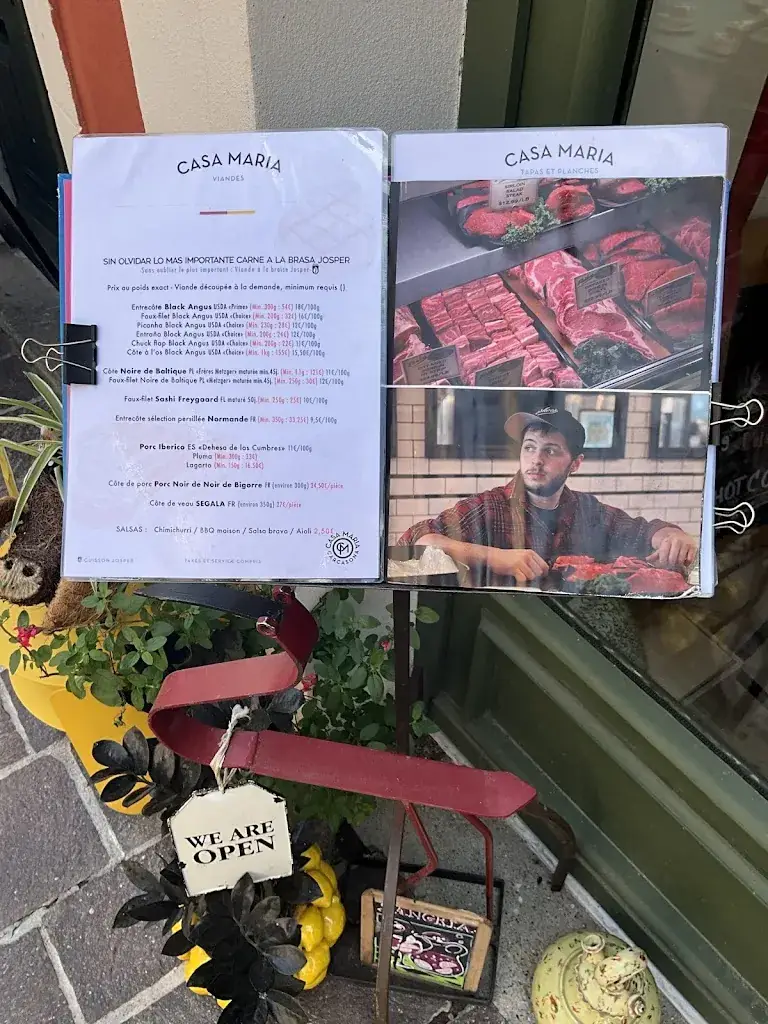 CASA MARIA
VIANDES
SIN OLVIDAR LO MAS IMPORTANTE CARNE A LA BRASA JOSPER
Sans oublier le plus important : Viande à la braise Josper
Prix au poids exact - Viande découpée à la demande, minimum requis ()
Entrecôte Black Angus USDA «Prime» (Min. 300g : 54€) 18€/100g
Faux-filet Black Angus USDA «Choice» (Min. 200g : 32€) 16€/100g
Picanha Black Angus USDA «Choice» (Min. 230g : 28€) 12€/100g
Entraña Black Angus USDA «Choice» (Min. 200g : 24€) 12€/100g
Chuck Flap Black Angus USDA «Choice» (Min. 200g : 22€) 11€/100g
Côte à l'os Black Angus USDA «Choice» (Min. 1kg : 155€) 15,50€/100g
Côte Noire de Baltique PL «Frères Metzger» maturée min.45j. 11€/100g
Faux-filet Noire de Baltique PL «Metzger» maturée min.45j. (Min. 250g : 30€) 12€/100g
Faux-filet Sashi Freygaard FL maturé 50j. (Min. 250g : 25€) 10€/100g
Entrecôte sélection persillée Normande FR (Min. 350g : 33.25€) 9,5€/100g
Porc Iberico ES «Dehesa de los Cumbres» 11€/100g
Pluma (Min. 300g : 33€)
Lagarto (Min. 150g : 16.50€)
Côte de porc Porc Noir de Noir de Bigorre FR (environ 300g) 24,50€/pièce
Côte de veau SEGALA FR (environ 350g) 27€/pièce
SALSAS : Chimichurri / BBQ maison / Salsa brava / Aioli 2,50€
CASA MARIA
CARCASONA
CUISSON JOSPER
TAXES ET SERVICE COMPRIS
CASA MARIA
TAPAS ET PLANCHES
SIRLOIN
SALAD
STEAK
$12.99/LB
WE ARE
OPEN
SANGRIA
HOT CO